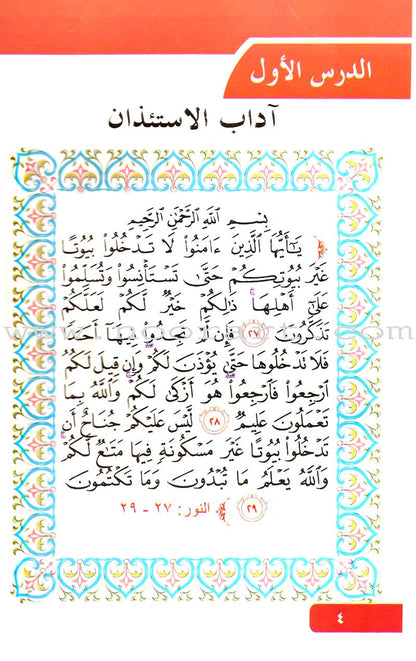 الدرس الأول
آداب الاستئذان
بِسْمِ ٱللَّهِ ٱلرَّحْمَٰنِ ٱلرَّحِيمِ
﴿ يَٰٓأَيُّهَا ٱلَّذِينَ ءَامَنُوا۟ لَا تَدْخُلُوا۟ بُيُوتًا
غَيْرَ بُيُوتِكُمْ حَتَّىٰ تَسْتَأْنِسُوا۟ وَتُسَلِّمُوا۟
عَلَىٰٓ أَهْلِهَا ۚ ذَٰلِكُمْ خَيْرٌ لَّكُمْ لَعَلَّكُمْ
تَذَكَّرُونَ ٢٧ فَإِن لَّمْ تَجِدُوا۟ فِيهَآ أَحَدًا
فَلَا تَدْخُلُوهَا حَتَّىٰ يُؤْذَنَ لَكُمْ ۖ وَإِن قِيلَ لَكُمُ
ٱرْجِعُوا۟ فَٱرْجِعُوا۟ ۖ هُوَ أَزْكَىٰ لَكُمْ ۚ وَٱللَّهُ بِمَا
تَعْمَلُونَ عَلِيمٌ ٢٨ لَّيْسَ عَلَيْكُمْ جُنَاحٌ أَن
تَدْخُلُوا۟ بُيُوتًا غَيْرَ مَسْكُونَةٍ فِيهَا مَتَٰعٌ لَّكُمْ ۚ
وَٱللَّهُ يَعْلَمُ مَا تُبْدُونَ وَمَا تَكْتُمُونَ
٢٩ ﴾ النور: ٢٧ - ٢٩
٤